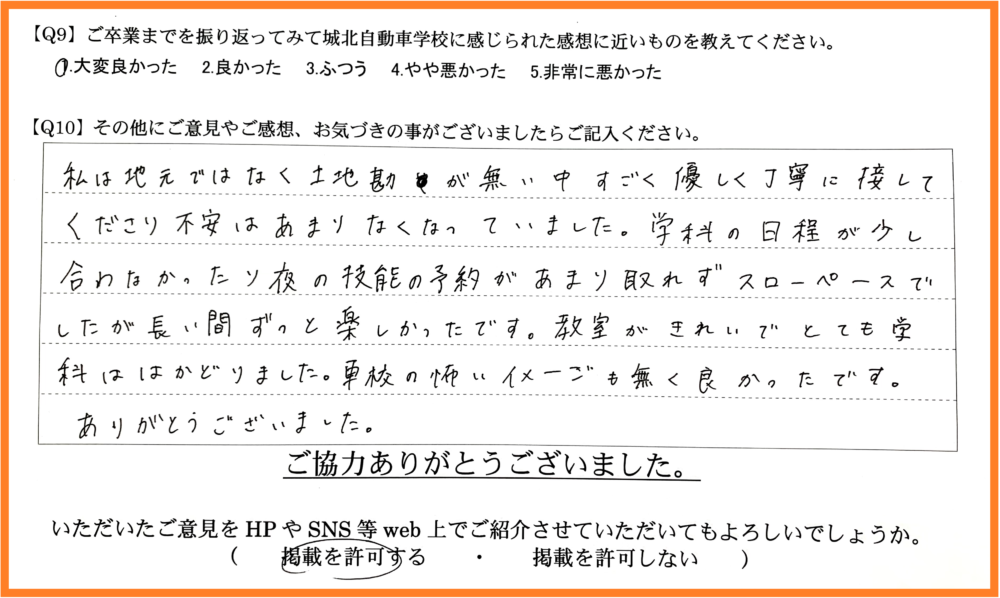 【Q9】ご卒業までを振り返ってみて城北自動車学校に感じられた感想に近いものを教えてください。
1.大変良かった 2.良かった 3.ふつう 4.やや悪かった 5.非常に悪かった
【Q10】その他にご意見やご感想、お気づきの事がございましたらご記入ください。
私は地元ではなく土地勘が無い中すごく優しく丁寧に接して
くださり不安はあまりなくなっていました。学科の日程が少し
合わなかったり夜の技能の予約があまり取れずスローペースで
したが長い間ずっと楽しかったです。教室がきれいでとても学
科ははかどりました。車校の怖いイメージも無く良かったです。
ありがとうございました。
ご協力ありがとうございました。
いただいたご意見をHPやSNS等web上でご紹介させていただいてもよろしいでしょうか。
( 掲載を許可する ・ 掲載を許可しない )